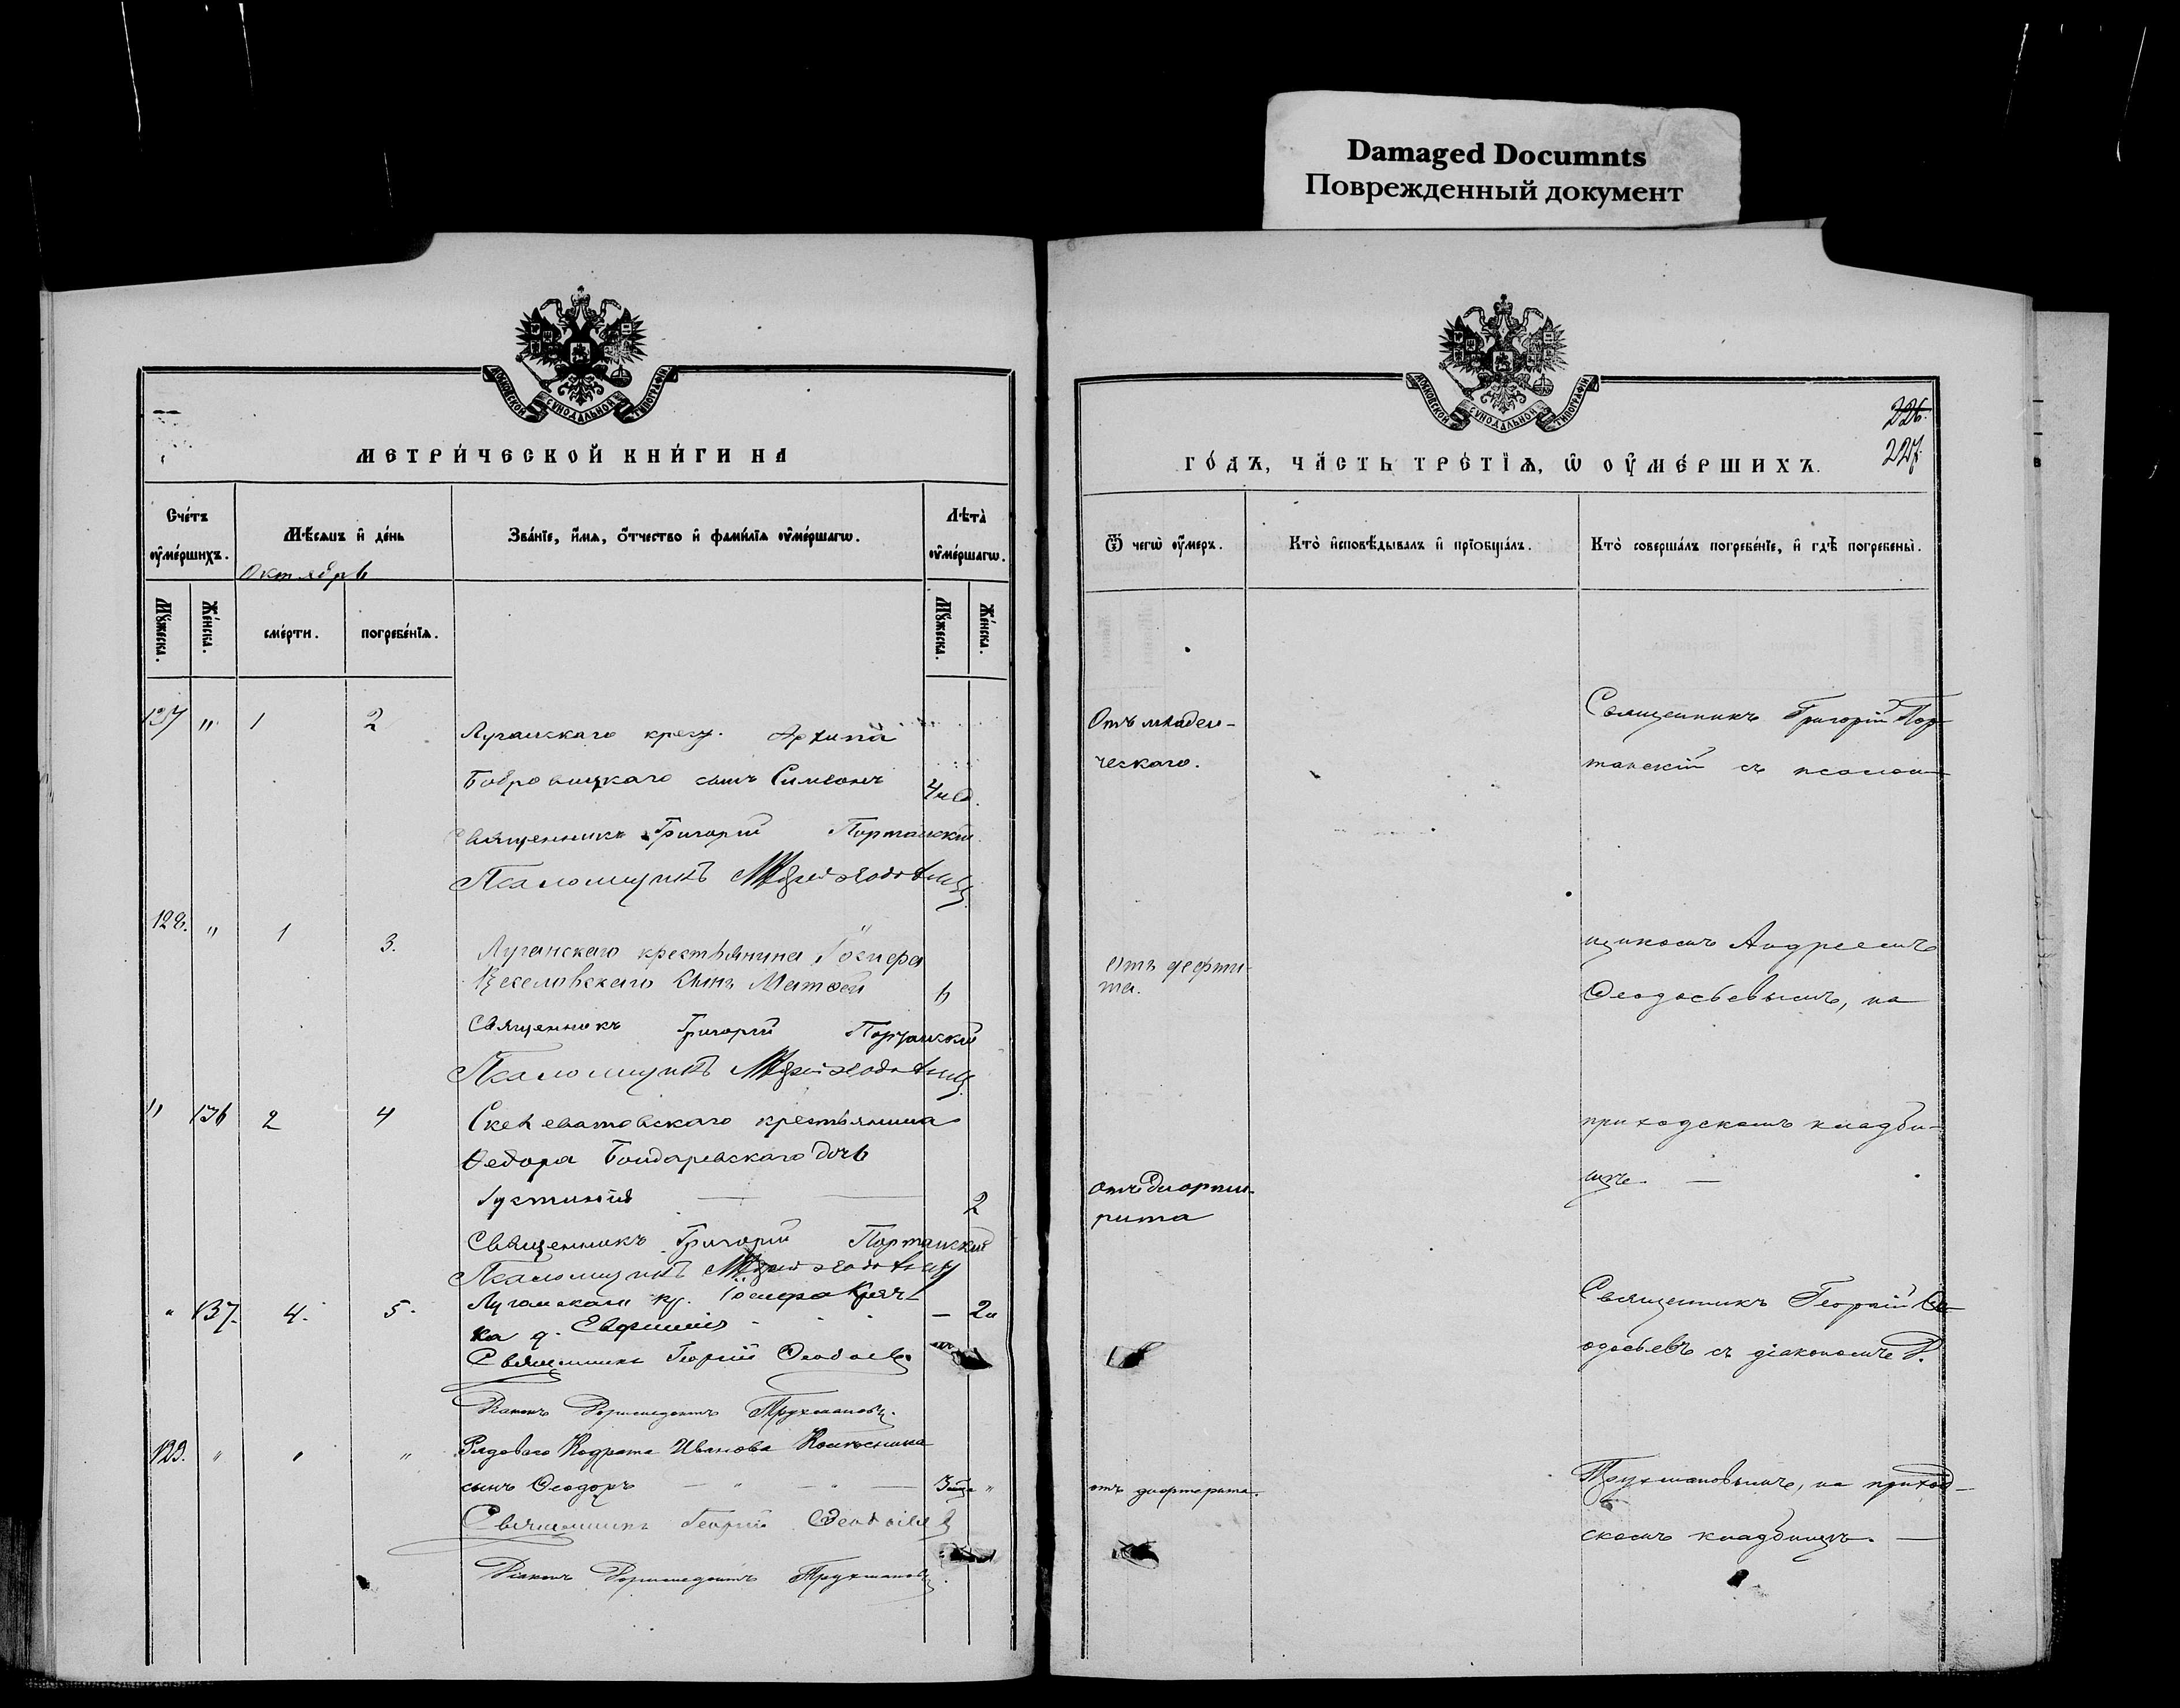 Damaged Documnts
Поврежденный документ
МОСКОВСКОЙ СУНОДАЛЬНОЙ ТИПОГРАФІИ
МЕТРИ́ЧЕСКОЙ КНИ́ГИ НА
Сче́тъ ᲂу҆ме́ршихъ.
Мѣ́сѧцъ и҆ де́нь
Октябрь
Зва́нїе, и҆́мѧ, ѻ҆́тчество и҆ фамі́лїа ᲂу҆ме́ршагѡ.
Лѣта̀ ᲂу҆ме́ршагѡ.
Мꙋ́жеска.
Же́нска.
сме́рти.
погребе́нїѧ.
Мꙋ́жеска.
Же́нска.
127 " 1 2
Луганскаго крест. Архипа
Бобровицкаго сынъ Симеонъ
4 нед.
Священникъ Григорій Портанскій
Псаломщикъ
128. " 1 3.
Луганскаго крестьянина Іосифа
Веселовскаго сынъ Матѳей 6
Священникъ Григорій Портанскій
Псаломщикъ
" 136 2 4
крестьянина
Ѳедора Бондаревскаго дочь
Іустинія — 2
Священникъ Григорій Портанскій
Псаломщикъ
" 137. 4. 5.
Луганскаго кр. Іосифа
ка д. Евфимія — 2
Священникъ Георгій Ѳеодосьевъ
Діаконъ Трухмановъ
129. " " "
Рядоваго Кодрата Иванова
сынъ Ѳеодоръ — " — " — "
Священникъ Георгій Ѳеодосьевъ
Діаконъ Трухмановъ
МОСКОВСКОЙ СУНОДАЛЬНОЙ ТИПОГРАФІИ
226.
227.
ГО́ДЪ, ЧА́СТЬ ТРЕ́ТЇѦ, Ѡ҆ ОУ҆МЕ́РШИХЪ.
Ѿ чегѡ̀ ᲂу҆́меръ.
Кто̀ и҆сповѣ́дывалъ и҆ прїѡбща́лъ.
Кто̀ соверша́лъ погребе́нїе, и҆ гдѣ̀ погребены̀.
Отъ младен-
ческаго.
Священникъ Григорій Пор-
танскій съ псалом-
отъ дефти-
та.
щикомъ Андреемъ
Ѳеодосьевымъ, на
приходскомъ кладби-
щѣ. —
отъ дифти-
рита
Священникъ Георгій Ѳе-
одосьевъ съ діакономъ Д.
отъ дифтерита.
Трухмановымъ, на приход-
скомъ кладбищѣ. —